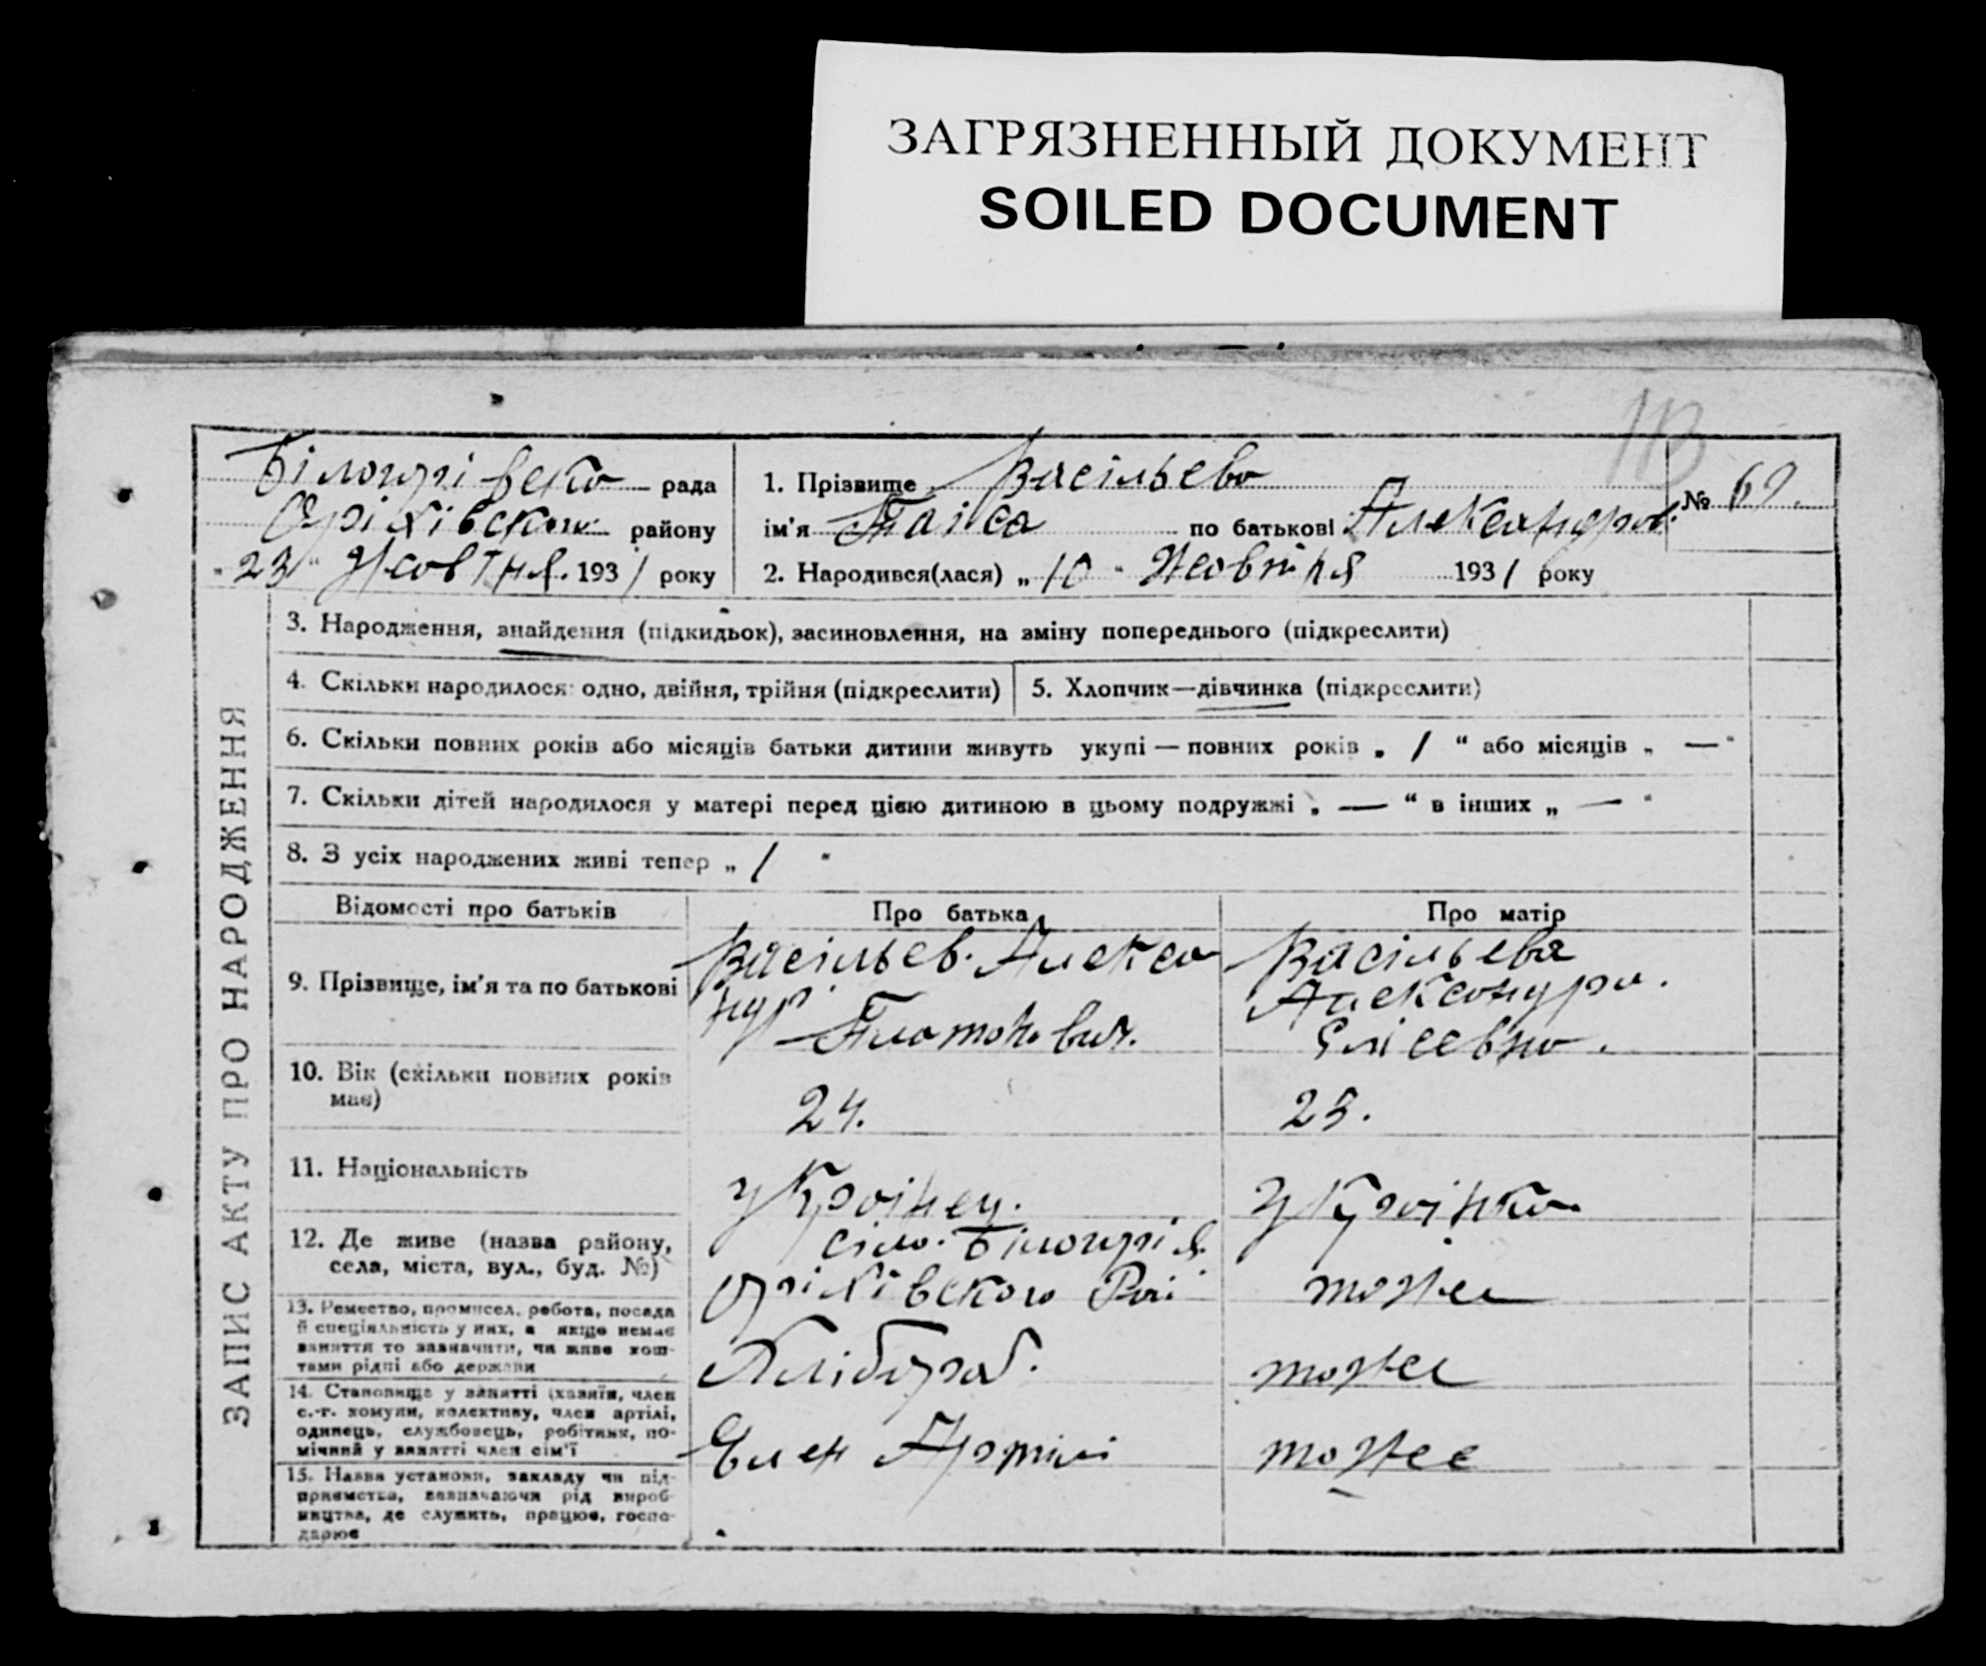 ЗАГРЯЗНЕННЫЙ ДОКУМЕНТ
SOILED DOCUMENT
113
Білогирівска рада
Оріхівского району
„23" Жовтня 1931 року
1. Прізвище Васільева
ім'я Таіса по батькові Александров.
№ 69.
2. Народився(лася) „10" Жовтня 1931 року
ЗАПИС АКТУ ПРО НАРОДЖЕННЯ
3. Народження, знайдення (підкидьок), засиновлення, на зміну попереднього (підкреслити)
4. Скільки народилося: одно, двійня, трійня (підкреслити)
5. Хлопчик—дівчинка (підкреслити)
6. Скільки повних років або місяців батьки дитини живуть укупі — повних років „ 1 “ або місяців „ — "
7. Скільки дітей народилося у матері перед цією дитиною в цьому подружжі „ — “ в інших „ — "
8. З усіх народжених живі тепер „ 1 "
Відомості про батьків
Про батька
Про матір
9. Прізвище, ім'я та по батькові
Васільев. Алекса
ндр
Платонович.
Васільева
Александра.
Елісеевна.
10. Вік (скільки повних років
має)
24.
23.
11. Національність
Украінец.
Украінка
12. Де живе (назва району,
села, міста, вул., буд. №)
село. Білогирія.
Оріхівского Рай
тоже
13. Ремество, промисел, робота, посада
й спеціяльність у них, а якщо немає
заняття то зазначити, чи живе кош-
тами рідні або держави
Хлібороб.
тоже
14. Становище у занятті (хазяїн, член
с.-г. комуни, колективу, член артілі,
одинець, службовець, робітник, по-
мічний у занятті член сім'ї
Член Артілі
тоже
15. Назва установи, закладу чи під-
приємства, зазначаючи рід вироб-
ництва, де служить, працює, госпо-
дарює